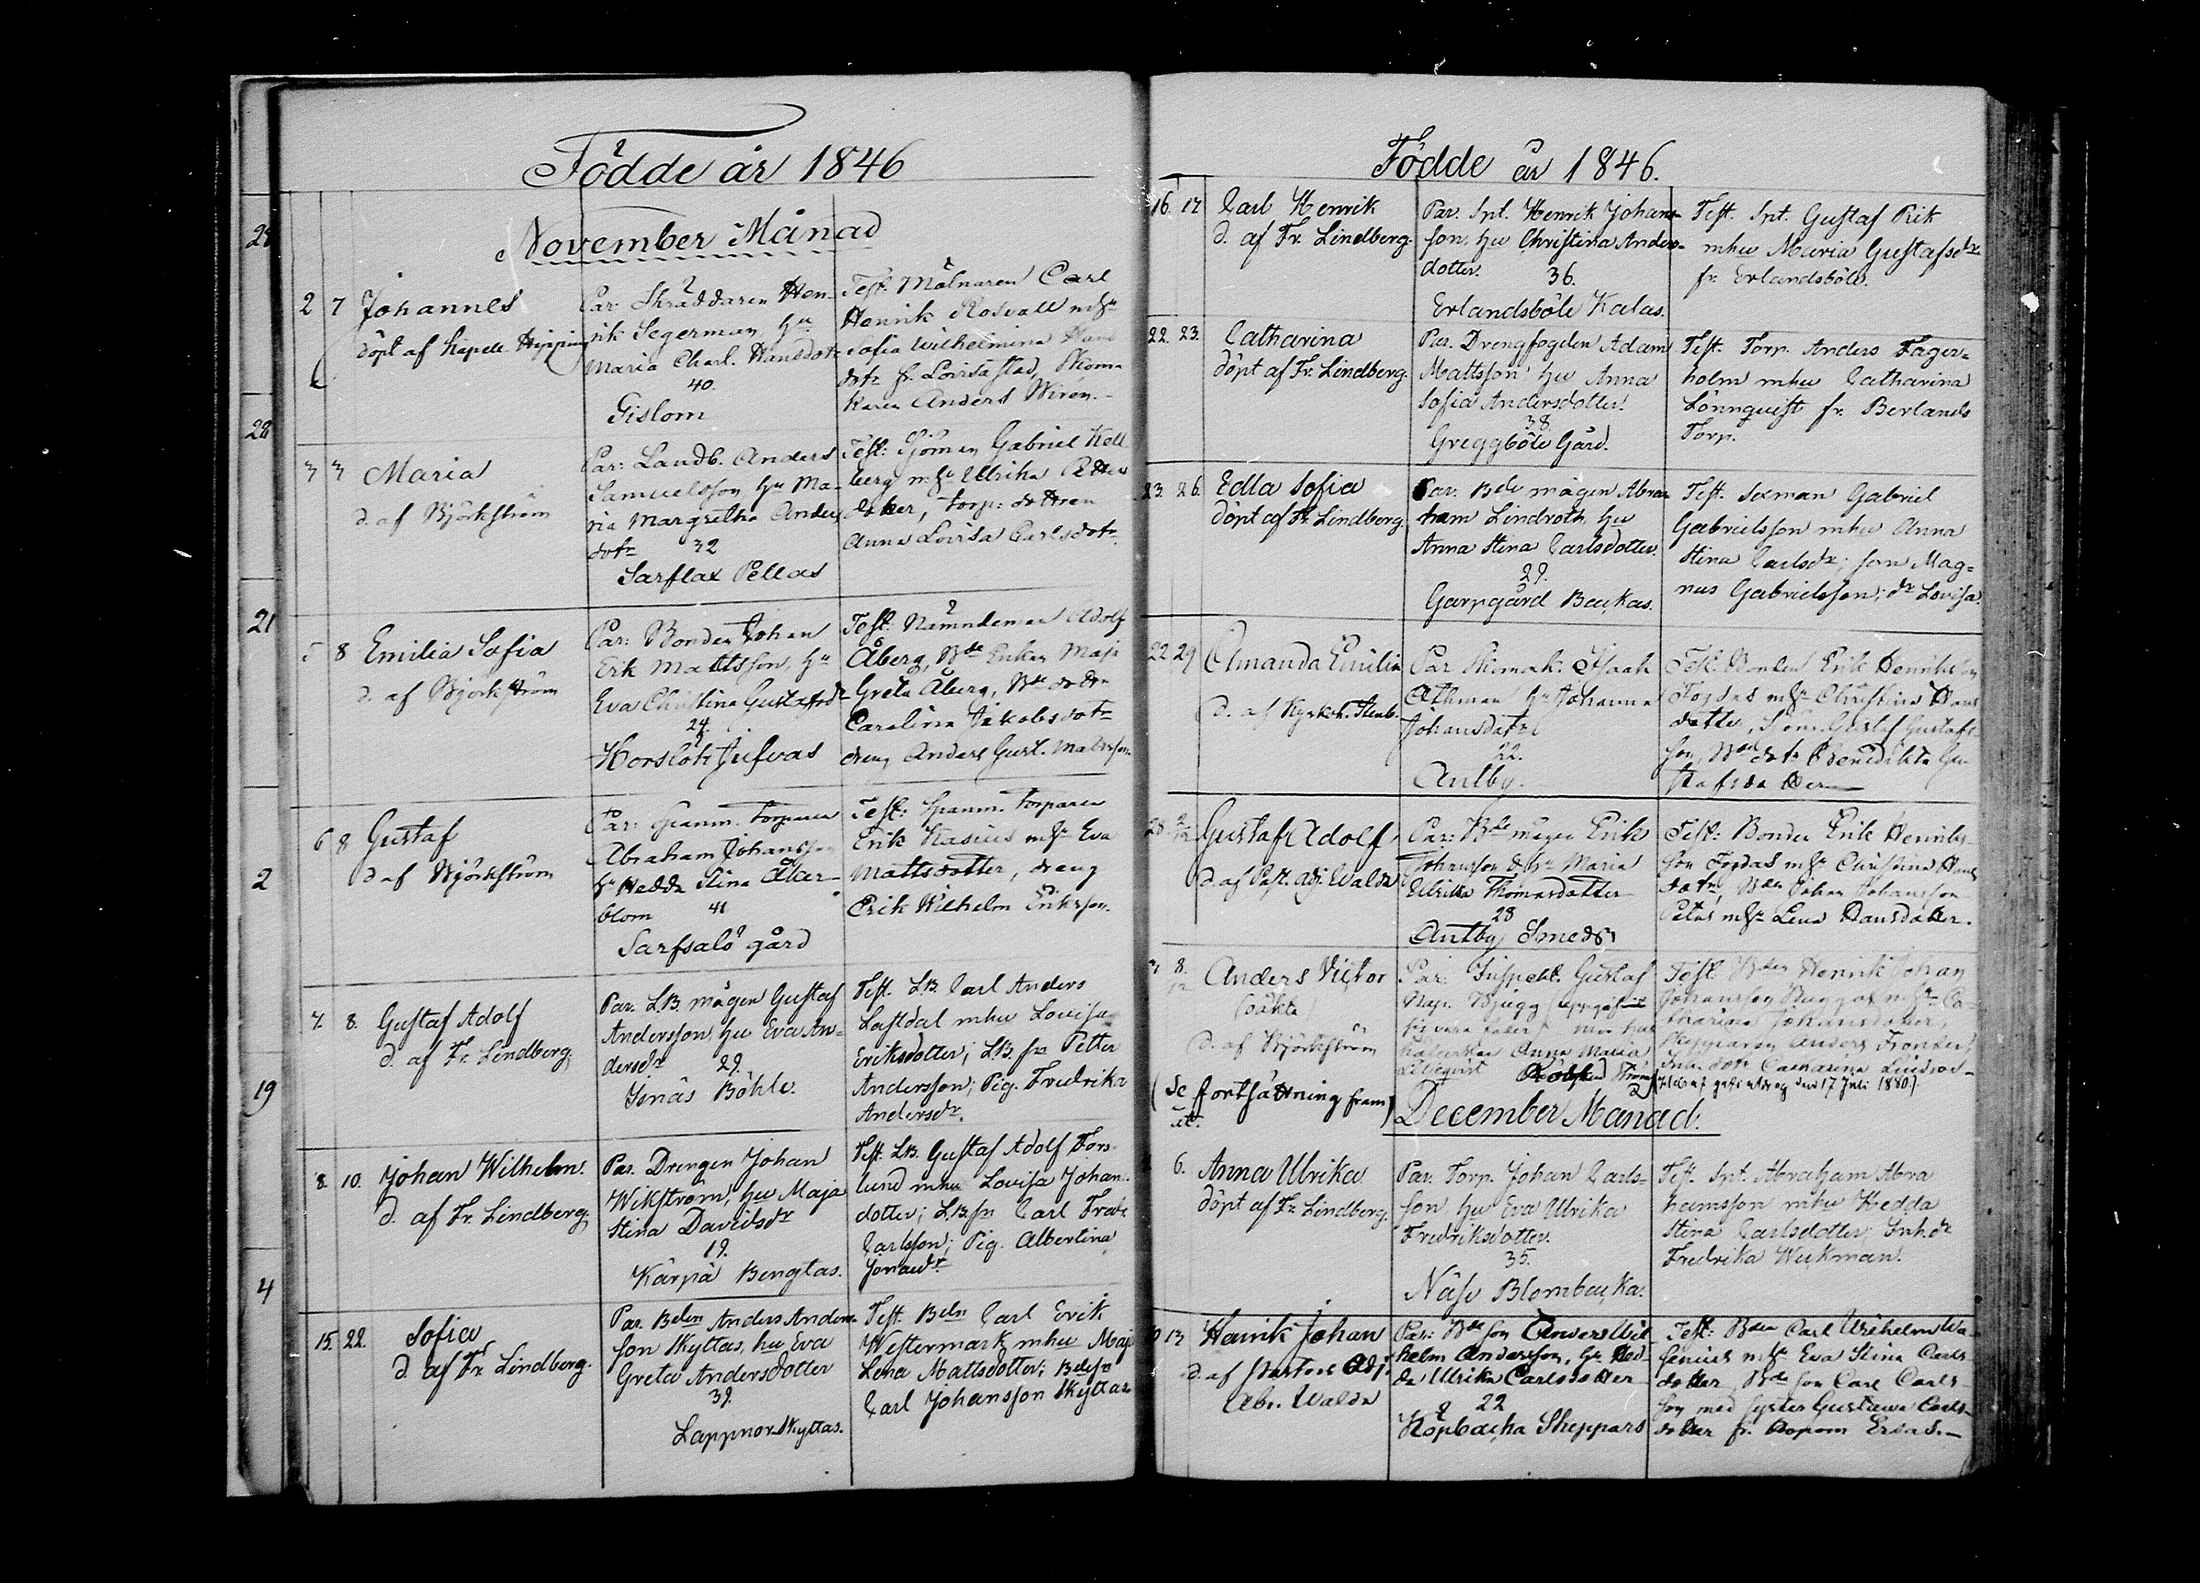 Födde år 1846
November Månad
2 7 Johannes
döpt af Kapell. Hipping
Par: Skräddaren Hen-
rik Segerman, hu
Maria Charl. Hansdotr
40.
Gislom
Test. Mölnaren Carl
Henrik Rosvall mhu
Sofia Wilhelmina Hans
dotr fr. Lovisa stad, Skoma
karen Anders Wiren.
3 3 Maria
d. af Björkström
Par: Landb. Anders
Samuelsson hu Ma-
ria Margretha Anders
dotr 32
Sarflax Pellas
Test: Sjöman Gabriel Kell
berg mhu Ulrika Petters
dotter, torp: dottren
Anna Lovisa Carlsdotr
5 8 Emilia Sofia
d. af Björkström
Par: Bonden Johan
Erik Mattsson, hu
Eva Christina Gustafsdr
24.
Horslök Jufvas
Test: Nämndeman Adolf
Åberg, Bde Enkan Maja
Greta Åberg, Bde dottren
Carolina Jakobsdotr
dreng Anders Gust. Mattsson
6 8 Gustaf
d. af Björkström
Par: Torparen
Abraham Johansson
hu Hedda Stina Åker-
blom 41
Sarfsalö gård
Test: Torparen
Erik Kasius mhu Eva
Mattsdotter, dreng
Erik Wilhelm Eriksson.
7. 8. Gustaf Adolf
d. af Fr. Lindberg.
Par. L.B. mågen Gustaf
Andersson, hu Eva An-
dersdr 29.
Isnäs Böhle.
Test. L.B. Carl Anders
Lastdal mhu Lovisa
Eriksdotter; L.B. sn Petter
Andersson; Pig. Fredrika
Andersdr.
8. 10. Johan Wilhelm.
d. af Fr. Lindberg.
Par. Drengen Johan
Wikström, hu Maja
Stina Davidsdr
19.
Kärpä Bengtas.
Test. L.B. Gustaf Adolf Fors-
lund mhu Lovisa Johan-
dotter; L.B. sn Carl Fredr
Carlsson; Pig. Albertina
Jonasdr.
15. 22. Sofia
d. af Fr. Lindberg.
Par. Bden Anders Anders-
son Skyttas, hu Eva
Greta Andersdotter
39.
Lappnor Skyttas.
Test. Bdn Carl Erik
Westermark mhu Maja
Lena Mattsdotter; Bdesn
Carl Johansson Skyttas
Födde år 1846.
16. 17 Carl Henrik
d. af Fr. Lindberg.
Par. Spt. Henrik Johans-
son, hu Christina Anders-
dotter. 36.
Erlandsböle Kalas.
Test. Spt. Gustaf Rik
mhu Maria Gustafsdr
fr. Erlandsböle.
22. 23. Catharina
döpt af Fr. Lindberg.
Par. Drengfogden Adam
Mattsson hu Anna
Sofia Andersdotter.
38.
Greggböle Gård.
Test. Torp. Anders Fager-
holm mhu Catharina
Lönnquist fr. Berlands
Torp.
23. 26. Edla Sofia
döpt af Fr. Lindberg.
Par. Bde mågen Abra
ham Lindroth, hu
Anna Stina Carlsdotter.
29.
Garpgård Backas.
Test. Sexman Gabriel
Gabrielsson mhu Anna
Stina Carlsdr; son Mag-
nus Gabrielsson; dr Lovisa.
22 29 Amanda Emilia
d. af Kyrkoh. Stenb.
Par Skomak. Isaak
Athman hu Johanna
Johansdotr
22.
Antby.
Test. Bonden Erik Henriksson
Tordas mhu Christina Hans
dotter, Gustaf Gustafs
son, Bde dotr Benedikta Gu
stafsdotter
28. 2/12 Gustaf Adolf
d. af Past. Adj. Walda
Par: Bde mågen Erik
Johansson & hu Maria
Ulrika Thomasdotter
28
Antby Smeds
Test: Bonden Erik Henriks
son Tordas mhu Christina Hans
dotr, Bden Johan Johansson
Petas mhu Lena Hansdotter.
8/12 Anders Victor
(oäkta)
d. af Björkström
Par: Inspekt. Gustaf
Nap. Bjugg (uppgifvit
sig vara fader)
Anna Maria
Liliqvist
Test Bden Henrik Johan
Johansson Buggas mhu Ca-
tharina Johansdotter,
Skepparen Anders
dotr Catharina
den 17 Juli 1880).
(Se fortsättning fram
åt.)
December Månad.
6. Anna Ulrika
döpt af Fr. Lindberg.
Par. Torp. Johan Carls-
son hu Eva Ulrika
Fredriksdotter.
35.
Näse Blombacka.
Test. Spt. Abraham Abra
hamsson mhu Hedda
Stina Carlsdotter; Inhdr
Fredrika Weckman.
13 Henrik Johan
d. af Pastors Adj.
Abr. Walda
Par: Bde son Anders Wil
helm Andersson, hu Hed-
da Ulrika Carlsdotter
22
Köpbacka Skeppars
Test: Bden Carl Wilhelm Wa-
senius mhu Eva Stina Carls-
dotter, Bde son Carl Carls
son med syster Gustava Carls-
dotter fr. Dopom Ersas.